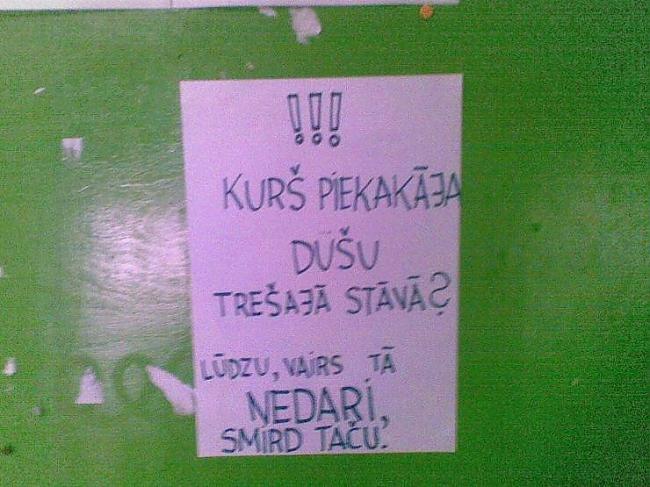 !!!
KURŠ PIEKAKĀJA
DUŠU
TREŠAJĀ STĀVĀ?
LŪDZU, VAIRS TĀ
NEDARI,
SMIRD TAČU.